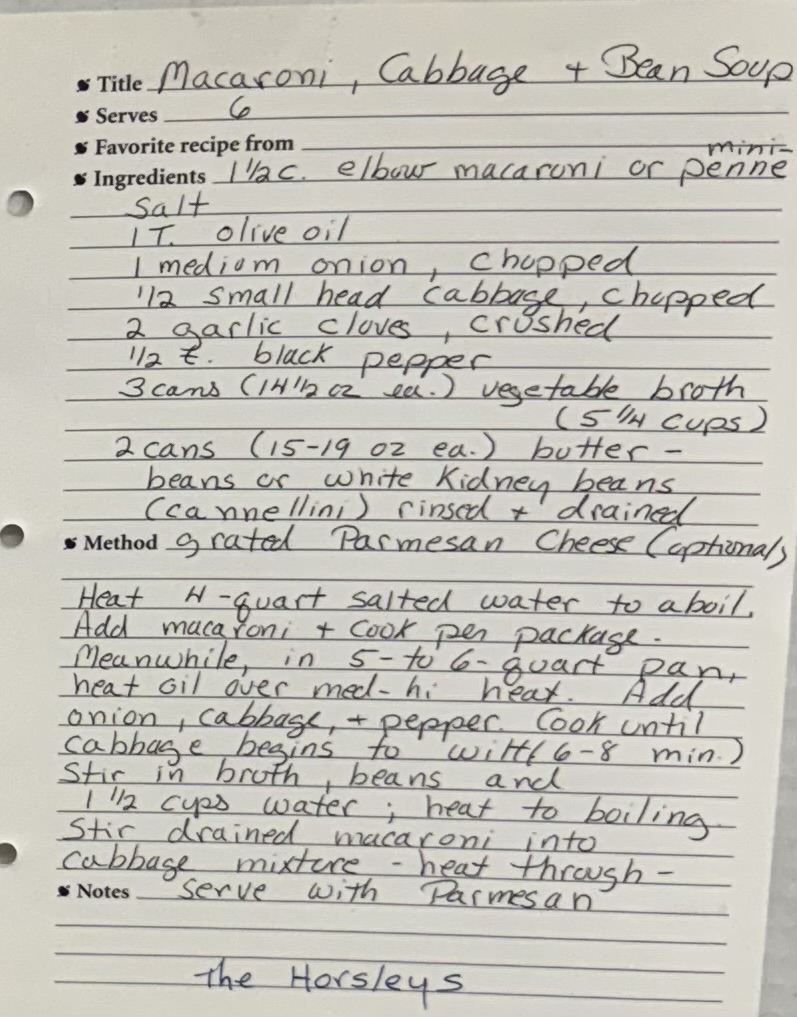 Title Macaroni, Cabbage + Bean Soup
Serves 6
Favorite recipe from
mini-
Ingredients 1 1/2 c. elbow macaroni or penne
Salt
1 T. olive oil
1 medium onion, chopped
1/2 small head cabbage, chopped
2 garlic cloves, crushed
1/2 t. black pepper
3 cans (14 1/2 oz ea.) vegetable broth
(5 1/4 cups)
2 cans (15-19 oz ea.) butter-
beans or white Kidney beans
(cannellini) rinsed + drained
Method grated Parmesan Cheese (optional)
Heat 4-quart salted water to a boil.
Add macaroni + cook per package.
Meanwhile, in 5-to 6-quart pan,
heat oil over med-hi heat. Add
onion, cabbage, + pepper. Cook until
cabbage begins to wilt (6-8 min.)
Stir in broth, beans and
1 1/2 cups water; heat to boiling.
Stir drained macaroni into
cabbage mixture - heat through -
Notes serve with Parmesan
The Horsleys